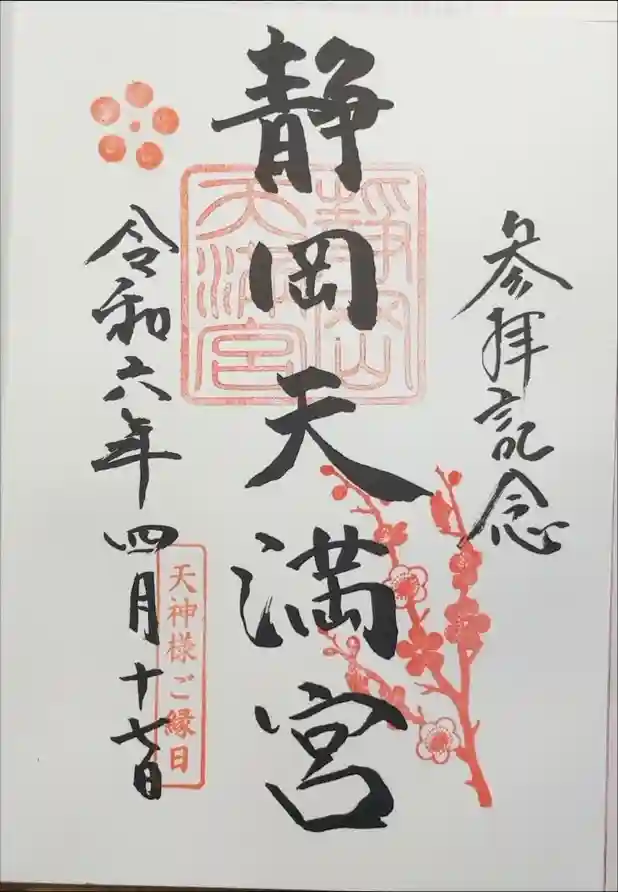 参拝記念
静岡天満宮
静岡天満宮
天神様ご縁日
令和六年四月十七日